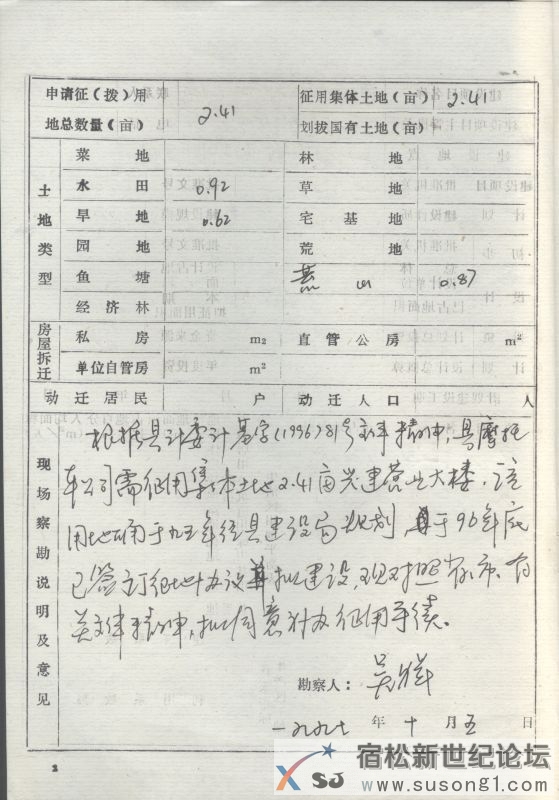 申请征（拨）用地总数量（亩） 2.41 征用集体土地（亩） 2.41
划拨国有土地（亩）
土地类型
菜地 林地
水田 0.92 草地
旱地 0.62 宅基地
园地 荒地
鱼塘 荒山 0.87
经济林
房屋拆迁
私房 m² 直管公房 m²
单位自管房 m²
动迁居民 户 动迁人口 人
现场察勘说明及意见
根据县计委计基字（1996）81号文件精神，县摩托
车公司需征用集体土地2.41亩兴建营业大楼，该
用地于九五年经县建设局规划，于96年底
已签订征地协议并拟建设，现对照省、市、有
关文件精神，拟同意补办征用手续。
勘察人：
一九九七年十月五日
2
SJ
宿松新世纪论坛
www.susong1.com